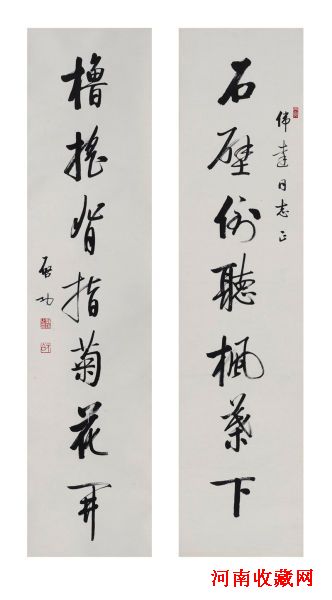 石壁倒聽楓葉下
偉達同志正
櫓搖背指菊花開
啟功
河南收藏网